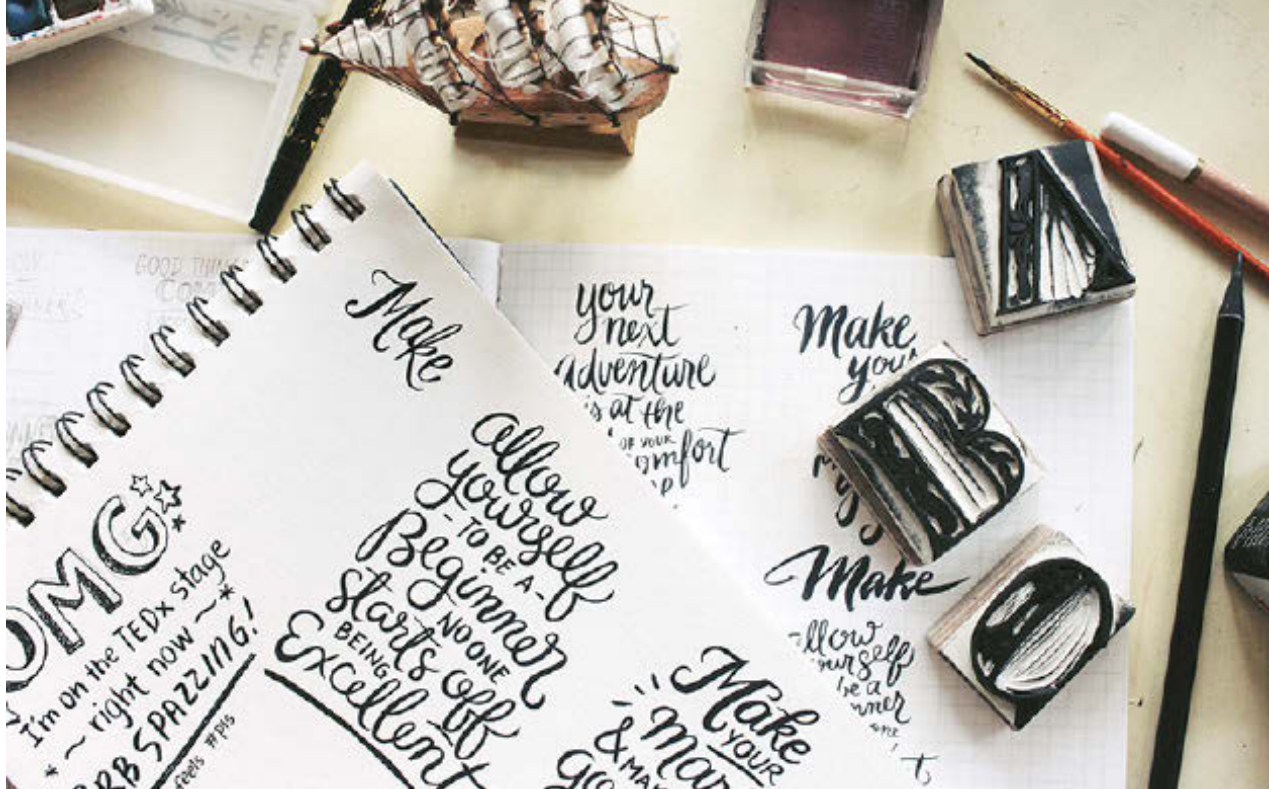 Make
allow
yourself
- TO BE A -
Beginner
NO ONE
starts off
BEING
Excellent
OMG
I'm on the TEDx stage
~ right now ~
BRB SPAZZING!
feels #pls
Make
YOUR
mar
& MA
go
your
next
adventure
is at the
OF YOUR
comfort
Make
your
my
Make
allow
yourself
be a
GOOD THINGS
COM
A
B
O